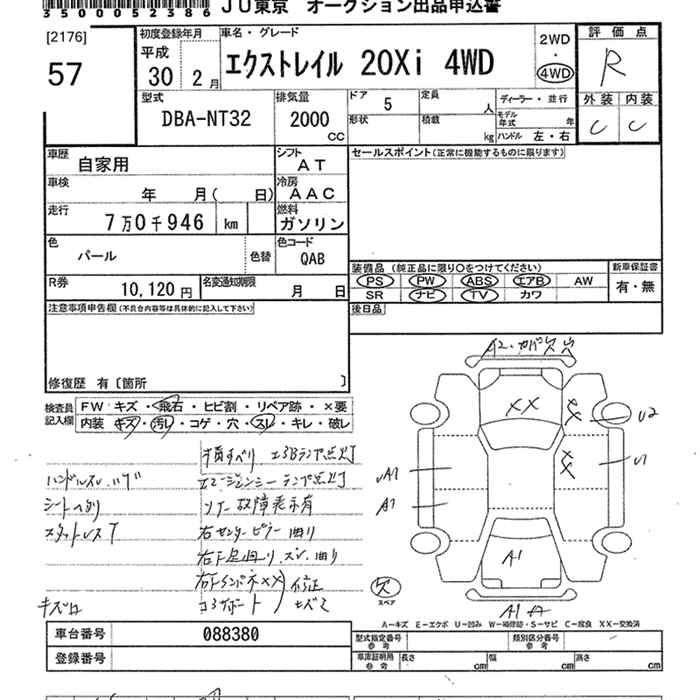 350052386 JU東京 オークション出品申込書
[2176]
57
初度登録年月
平成
30年 2月
車名・グレード
エクストレイル 20Xi 4WD
2WD
・
4WD
評価点
R
外装 内装
C C
型式
DBA-NT32
排気量
2000
CC
ドア 5
定員 人
形状
積載 kg
ディーラー・並行
モデル年式 年
ハンドル 左・右
車歴
自家用
シフト
AT
車検
年 月( 日)
冷房
AAC
走行
7万0千946 km
燃料
ガソリン
色
パール
色替
色コード
QAB
R券
10,120円
名変通知期限
月 日
セールスポイント(正常に機能するものに限ります)
装備品 (純正品に限り○をつけてください)
PS PW ABS エアB AW
SR ナビ TV カワ
新車保証書
有・無
後日品
注意事項申告欄(不具合内容等は具体的に記入して下さい)
修復歴 有〔箇所 〕
検査員記入欄
FW キズ・飛石・ヒビ割・リペア跡・×要
内装 キズ・汚レ・コゲ・穴・スレ・キレ・破レ
ハンドルスレ
シートヘタリ
スタットレスT
エアBランプ点灯
エマージェンシーランプ点灯
ソナー故障表示有
右センターピラー曲り
キズロ
A2・カバー欠 穴
XX
XX
XX
U2
U1
UA1
A1
A1
欠
スペア
A1 A
A-キズ E-エクボ U-凹み W-補修跡・S-サビ C-腐食 XX-交換済
車台番号
088380
登録番号
型式指定番号
参考
類別区分番号
参考
車庫証明用
参考
長さ cm
幅 cm
高さ cm